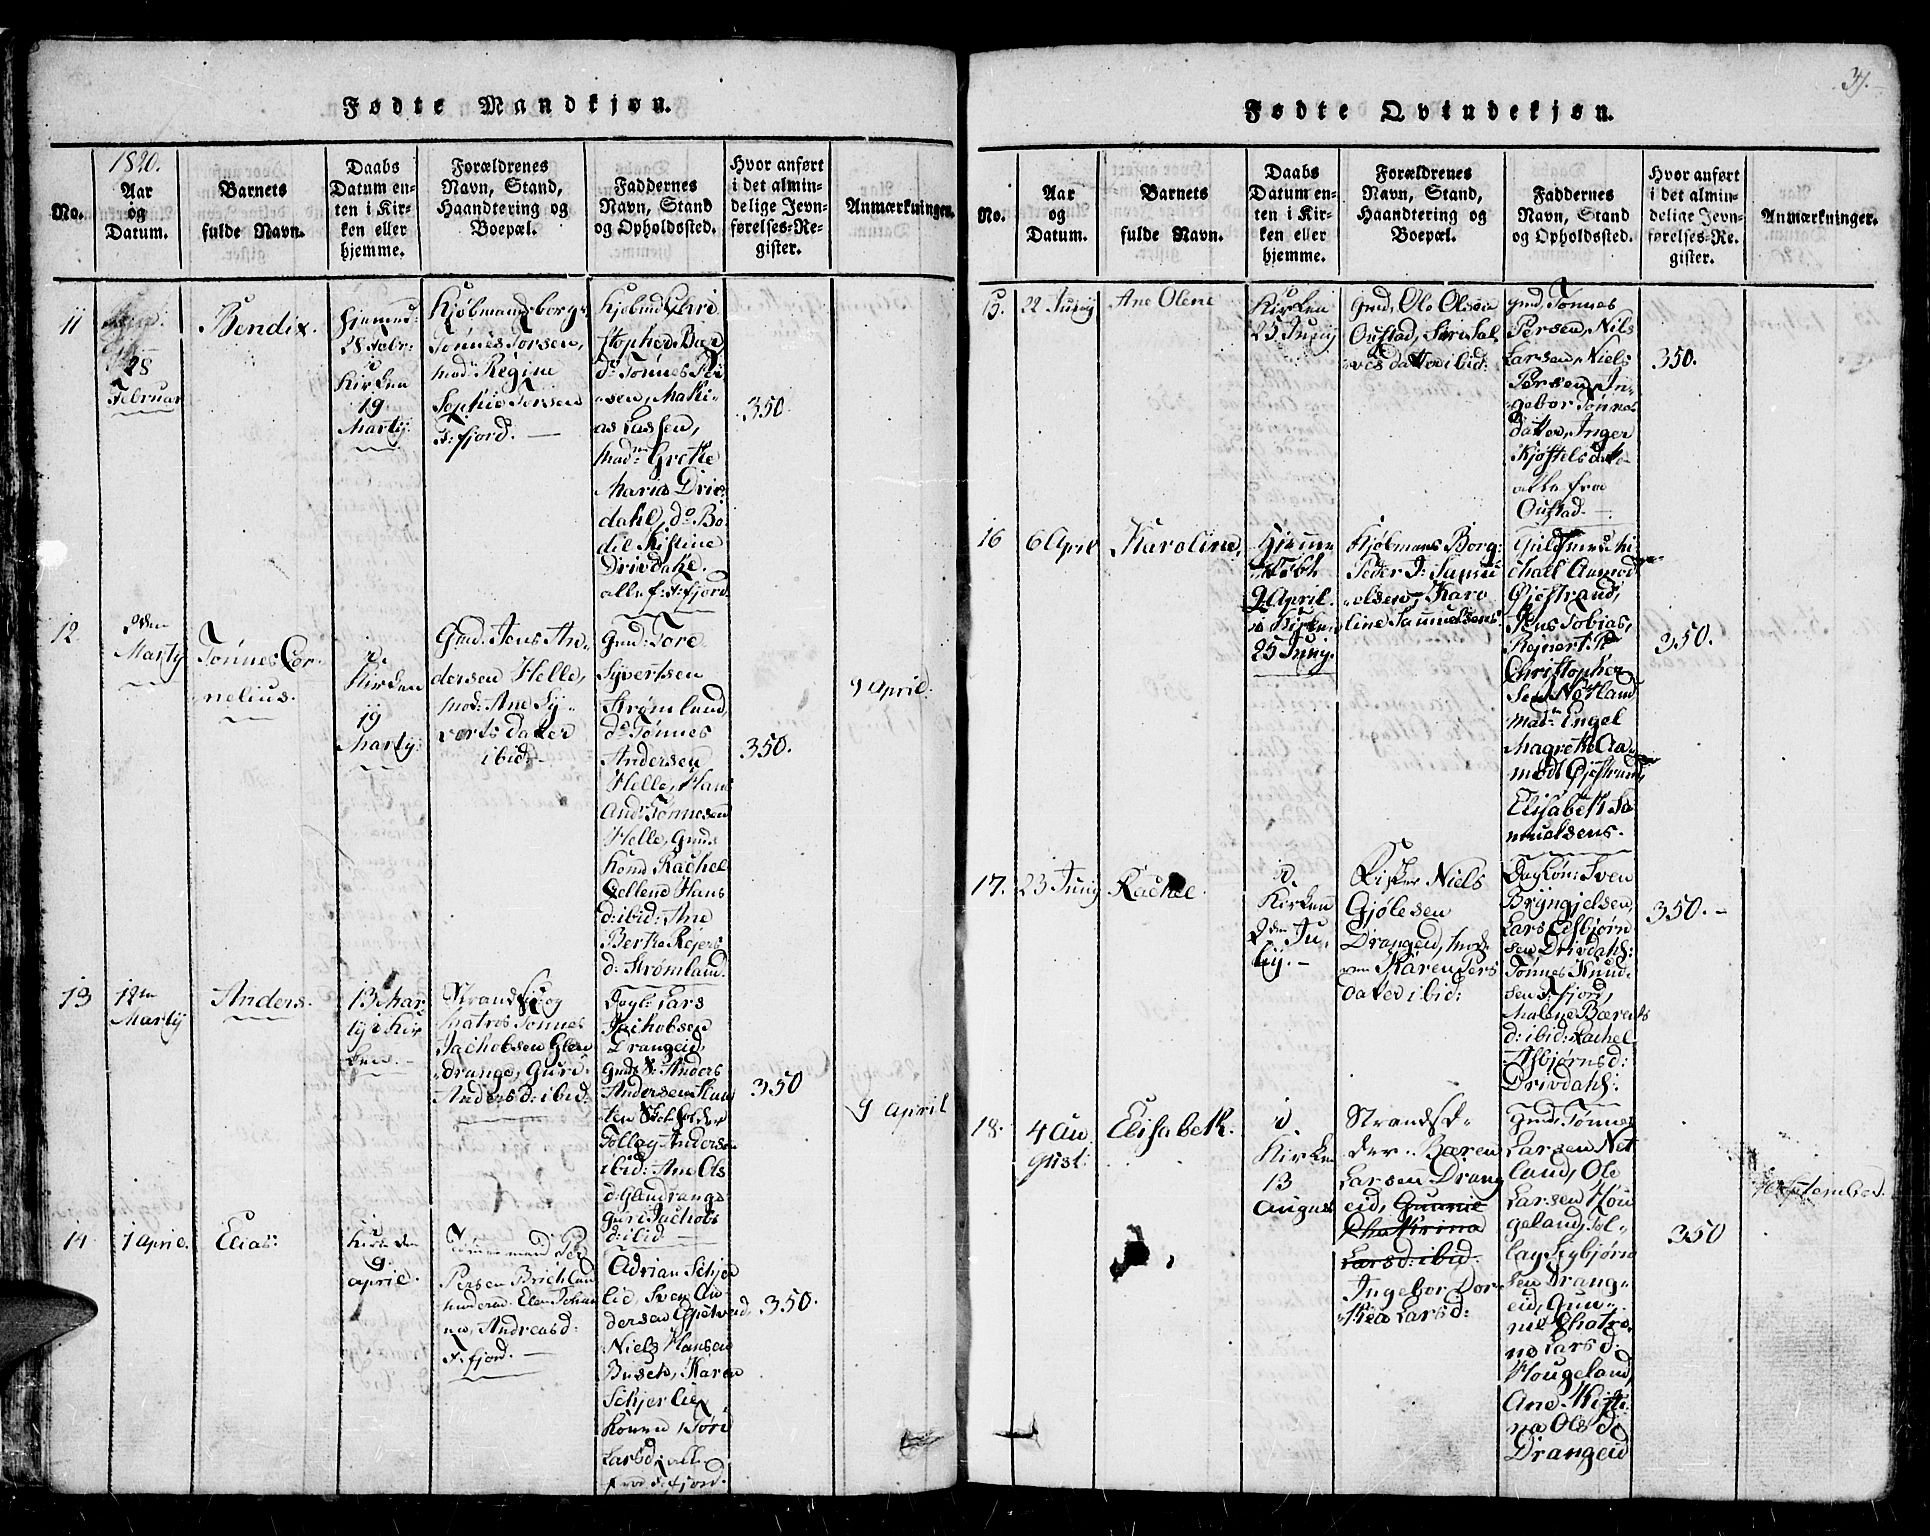 Fødte Mandkjøn.
1820.
No.
Aar
og
Datum.
Barnets
fulde Navn.
Daabs
Datum en-
ten i Kir-
ken eller
hjemme.
Forældrenes
Navn, Stand,
Haandtering og
Boepæl.
Faddernes
Navn, Stand
og Opholdssted.
Hvor anført
i det almin-
delige Jevn-
førelses-Re-
gister.
Anmærkninger.
11
28
Februar
Bendix.
Hjemme
28 Febr:
Kirken
19
Martij
Kjøbmandsborg
Tønnes Torsen,
Mad: Regine
Sophie Torsen
F: fjord. —
stopher
do Tønnes
sen, Mathi-
as Lassen,
Mad: Grethe
Maria Driv-
dahl, do Bo-
del Kistine
Drivdahl.
alle f: F: fjord.
350.
12
2den
Martij
Tønnes Cor-
nelius.
i
Kirken
19
Martij.
Gmd: Jens An-
dersen Helle,
Mod: Ane Sy-
verts datter
ibid:
Gmd: Tore
Syvertsen
Strømland,
do Tønnes
Andersen
Helle, Hans
And: Tønnesen
Helle, Gmds
Kone Rachel
Hans
d: ibid: Ane
Berthe Rejers
d: Strømland.
350.
9 April.
13
12te
Martij
Anders.
19 Mar
tij i Kir
ken. —
Strandsid: og
Matros Tønnes
Jachobsen Glen
drange, Guri
Anders d: ibid:
Dagl: Lars
Jachobsen
Drangeid,
Gmds S: Anders
Andersen
Tollag Anders
ibid: Ane Ols
d: Glendrange
Guri Jachobs
d: ibid
350
9 April
14
1 April.
Elias:
i
Kirken
9
April.
Persen
Elen Johan
na, Andreas d:
F: fjord. —
Adrian Schjer
lid, Sven An-
dersen
Niels Hansen
Busch, Karen
Schjerlies
Kone,
Lars d: alle
fra F: fjord.
350.
37.
Fødte Qvindekjøn.
No.
Aar
og
Datum.
Barnets
fulde Navn.
Daabs
Datum en-
ten i Kir-
ken eller
hjemme.
Forældrenes
Navn, Stand,
Haandtering og
Boepæl.
Faddernes
Navn, Stand
og Opholdssted.
Hvor anført
i det almin-
delige Jevn-
førelses-Re-
gister.
Anmærkninger.
15.
22 Junij
Ane Olene
i
Kirken
25 Junij
Gmd, Ole Olsen
Oustad, Siri Sal
ves datter ibid:
Gmd. Tønnes
Persen, Nils
Larsen, Niels
Persen, In-
gebor Tønnes
datter, Inger
Kjøstels datt-
alle fra
Oustad. —
350.
16
6 April
Karoline,
Hjemme
døbt
9 April.
i Kirken
25 Junij.
Kjøbmans Borg:
Peder J: Samu
elsen, Karo
line Samuelsens.
Guldsmed Mi
chael Aamod
Øjestrand,
Jens Tobias,
Rejnert P:
Christopher
sen Nøtland
Mad: Engel
Magrethe Aa-
modt Øjestrand,
Elisabeth Sa
muelsens.
350.
17.
23 Junij
Rachel.
i
Kirken
2den Ju-
lij. —
Fisker Niels
Gjølesen
Drangeid, Mod-
ren Karen Pers
datter ibid:
Dagløn: Sven
Bryngjelsen,
Lars Esbjørn
sen Drivdahl:
Tønnes Knud-
sen F: fjord,
Malene Bærents
d: ibid: Rachel
Asbjørns d:
Drivdahl:
350. —
18.
4 Au
gust:
Elisabeth.
i
Kirken
13
August
Strandsid-
der Bæren
Larsen Drang
eid, Gunnie
Chatrina
Lars d: ibid:
Ingebor Dor-
thea Lars d:
Gmd: Tønnes
Larsen Net
land, Ole
Larsen Hou
geland, Tol-
lag Sigbjørn
sen Drang-
eid, Gun-
nie Chatri-
na Lars d:
Hougeland,
Ane Kisti-
na Ols d:
Drangeid
350
September.